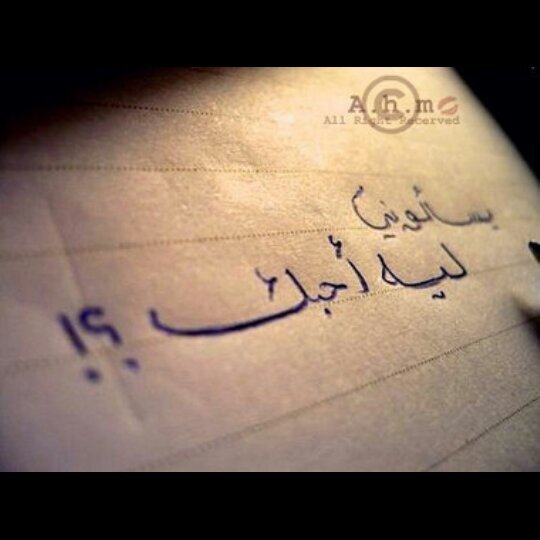 A.h.m
All Right Recerved
يسألوني
ليه أحبك ؟!